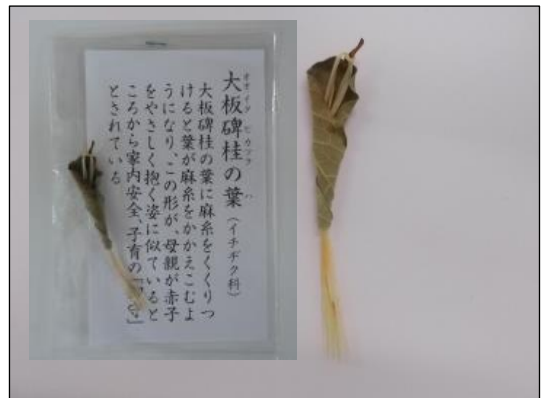 大板碑桂の葉(イチヂク科)
オオイタヒカツラ ハ
大板碑桂の葉に麻糸をくくりつ
けると葉が麻糸をかかえこむよ
うになり、この形が、母親が赤子
をやさしく抱く姿に似ていると
ころから家内安全、子育の「
とされている